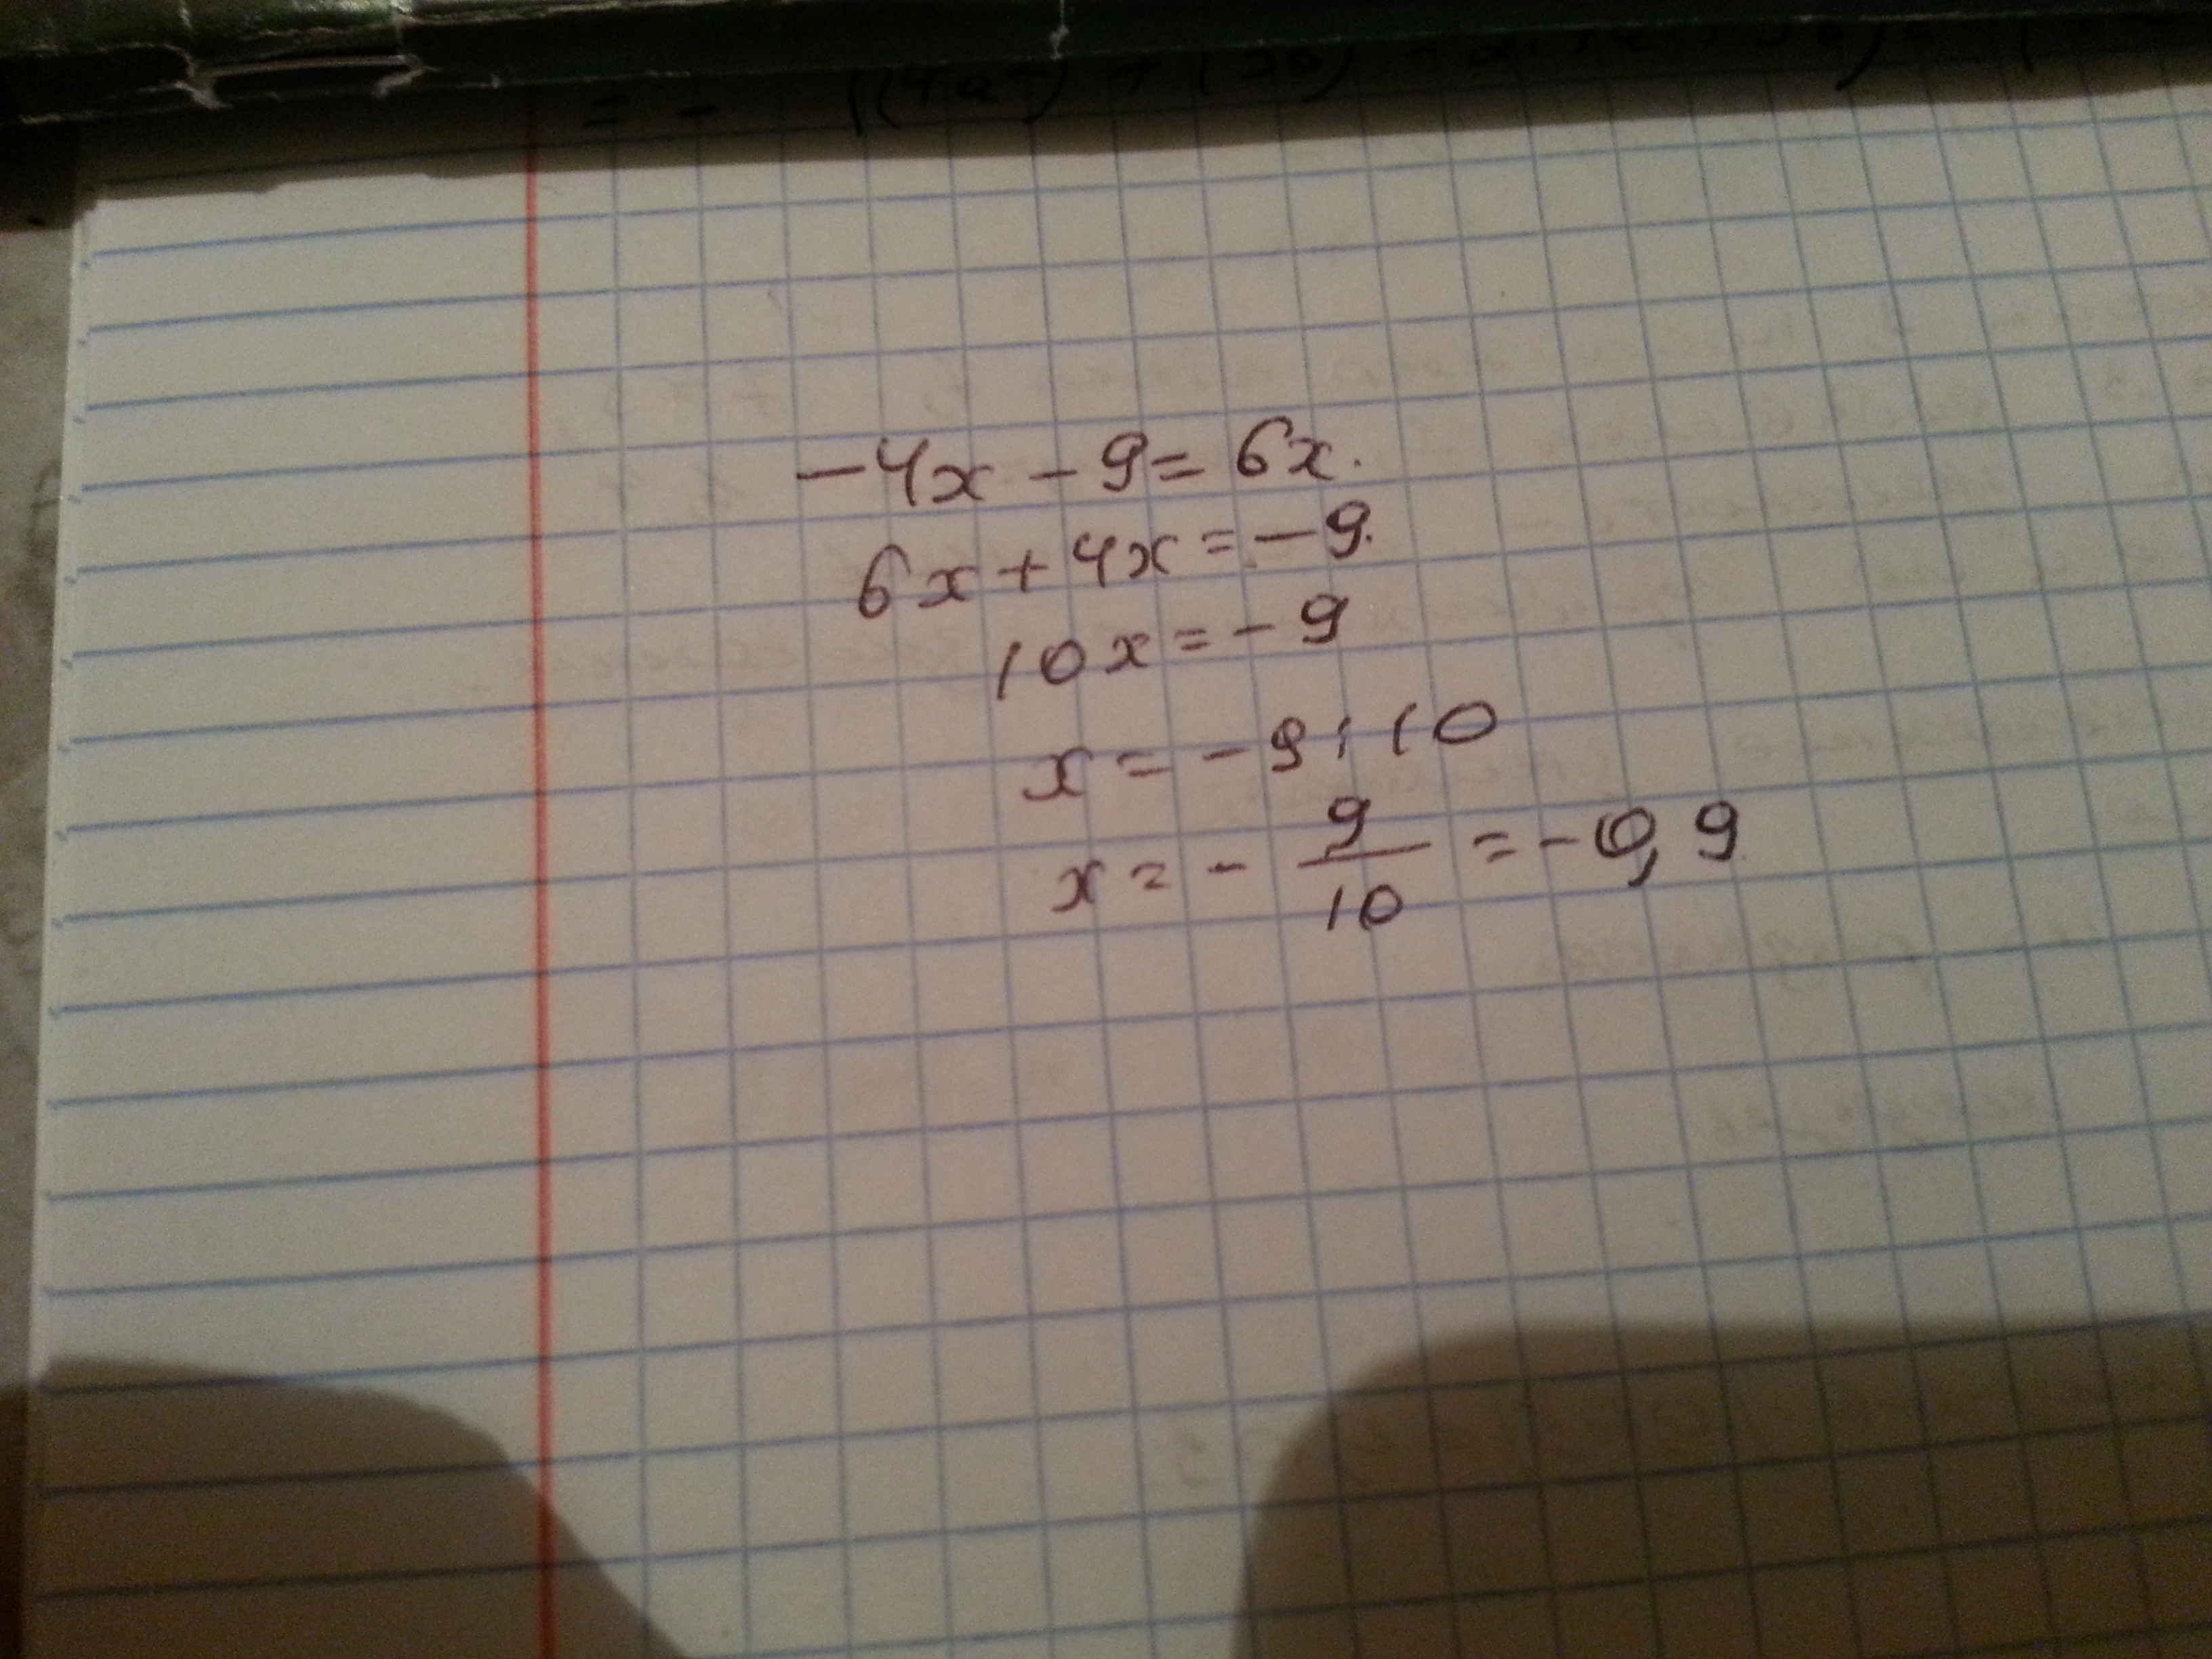 = - ((4a
-4x - 9 = 6x.
6x + 4x = -9.
10x = -9
x = -9 : 10
x = - 9/10 = -0,9